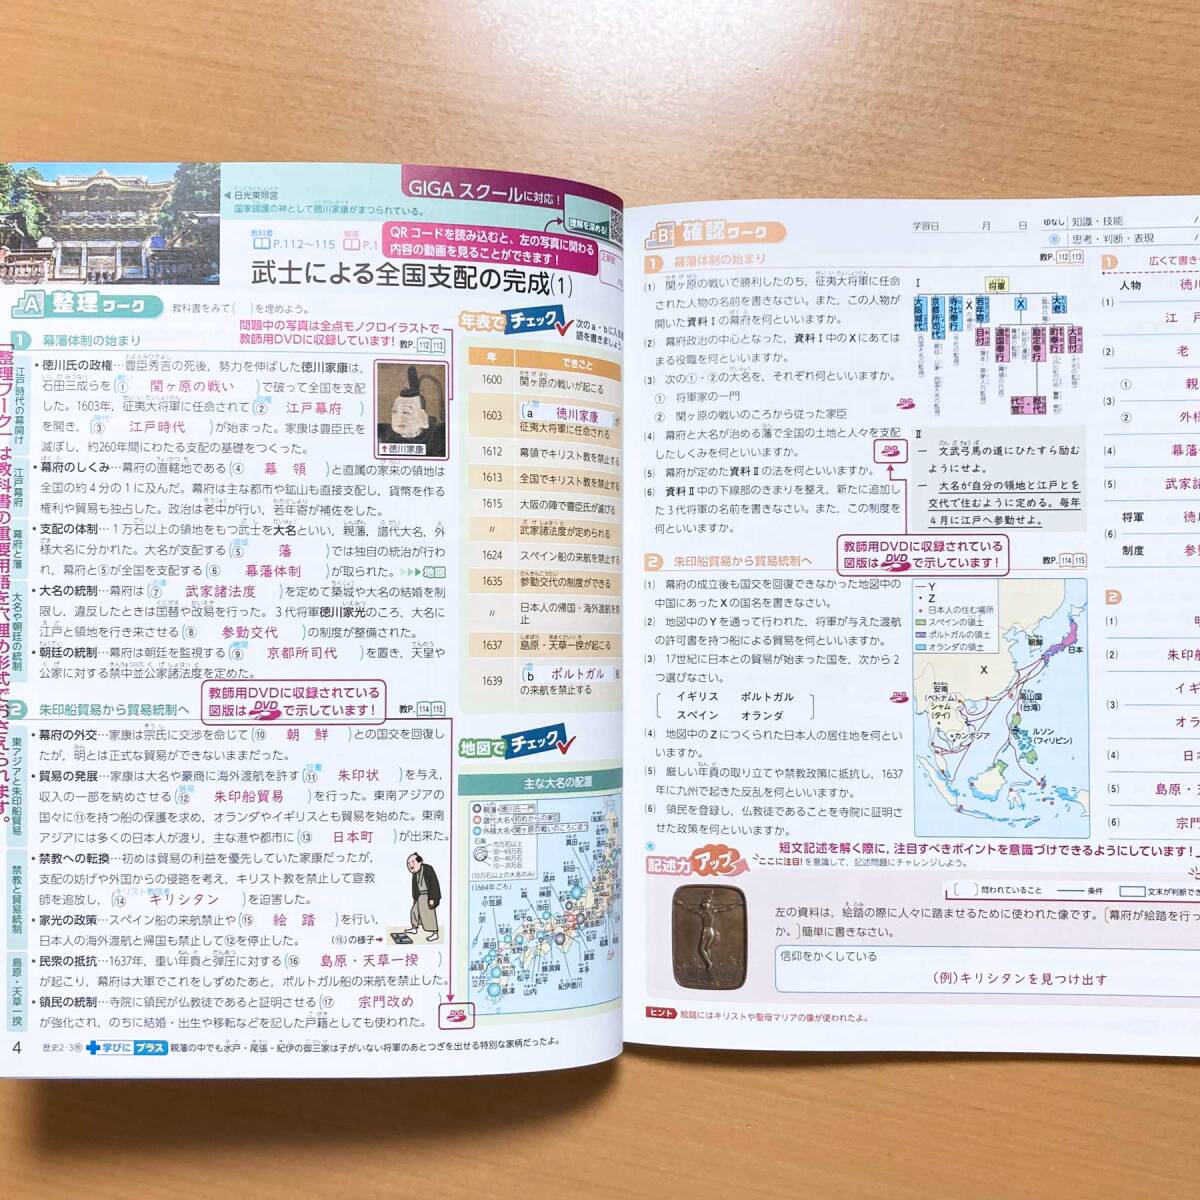 ◀日光東照宮
国家鎮護の神として徳川家康がまつられている。
GIGA スクールに対応！
理解を深める！
教科書 P.112〜115 解答 P.1
QRコードを読み込むと、左の写真に関わる
内容の動画を見ることができます！
武士による全国支配の完成(1)
A 整理ワーク 教科書をみて( )を埋めよう。
問題中の写真は全点モノクロイラストで
教師用DVDに収録しています！
1 幕藩体制の始まり 教P. 112 113
・徳川氏の政権…豊臣秀吉の死後、勢力を伸ばした徳川家康は、
石田三成らを(① 関ヶ原の戦い )で破って全国を支配
した。1603年、征夷大将軍に任命されて(② 江戸幕府 )
を開き、(③ 江戸時代 )が始まった。家康は豊臣氏を
滅ぼし、約260年間にわたる支配の基礎をつくった。
↑徳川家康
・幕府のしくみ…幕府の直轄地である(④ 幕領 )と直属の家来の領地は
全国の約4分の1に及んだ。幕府は主な都市や鉱山も直接支配し、貨幣を作る
権利や貿易も独占した。政治は老中が行い、若年寄が補佐をした。
・支配の体制…1万石以上の領地をもつ武士を大名といい、親藩、譜代大名、外
様大名に分かれた。大名が支配する(⑤ 藩 )では独自の統治が行わ
れ、幕府と⑤が全国を支配する(⑥ 幕藩体制 )が取られた。▶▶▶地図
・大名の統制…幕府は(⑦ 武家諸法度 )を定めて築城や大名の結婚を制
限し、違反したときは国替や改易を行った。3代将軍徳川家光のころ、大名に
江戸と領地を行き来させる(⑧ 参勤交代 )の制度が整備された。
・朝廷の統制…幕府は朝廷を監視する(⑨ 京都所司代 )を置き、天皇や
公家に対する禁中並公家諸法度を定めた。
教師用DVDに収録されている
図版はDVDで示しています！
2 朱印船貿易から貿易統制へ 教P. 114 115
・幕府の外交…家康は宗氏に交渉を命じて(⑩ 朝鮮 )との国交を回復し
たが、明とは正式な貿易ができないままだった。
・貿易の発展…家康は大名や豪商に海外渡航を許す(⑪ 朱印状 )を与え、
収入の一部を納めさせる(⑫ 朱印船貿易 )を行った。東南アジアの
国々に⑪を持つ船の保護を求め、オランダやイギリスとも貿易を始めた。東南
アジアには多くの日本人が渡り、主な港や都市に(⑬ 日本町 )が出来た。
・禁教への転換…初めは貿易の利益を優先していた家康だったが、
支配の妨げや外国からの侵略を考え、キリスト教を禁止して宣教
師を追放し、(⑭ キリシタン )を迫害した。
・家光の政策…スペイン船の来航禁止や(⑮ 絵踏 )を行い、
日本人の海外渡航と帰国も禁止して⑫を停止した。
(⑮)の様子➔
・民衆の抵抗…1637年、重い年貢と弾圧に対する(⑯ 島原・天草一揆 )
が起こり、幕府は大軍でこれをしずめたあと、ポルトガル船の来航を禁止した。
・領民の統制…寺院に領民が仏教徒であると証明させる(⑰ 宗門改め )
が強化され、のちに結婚・出生や移転などを記した戸籍としても使われた。
DVD
江戸時代の幕開け
江戸幕府
幕府と藩
大名や朝廷の統制
東アジアと朱印船貿易
禁教と貿易統制
島原・天草一揆
整理ワークは教科書の重要用語を穴埋め形式でおさえられます。
4 歴史2・3 学びにプラス 親藩の中でも水戸・尾張・紀伊の御三家は子がいない将軍のあとつぎを出せる特別な家柄だったよ。
年表でチェック
年 できごと
1600 関ヶ原の戦いが起こる
1603 (a 徳川家康 )が
征夷大将軍に任命される
1612 幕領でキリスト教を禁止する
1613 全国でキリスト教を禁止する
1615 大阪の陣で豊臣氏が滅びる
〃 武家諸法度が定められる
1624 スペイン船の来航を禁止する
1635 参勤交代の制度ができる
〃 日本人の帰国・海外渡航を禁
止
1637 島原・天草一揆が起こる
1639 (b ポルトガル )船
の来航を禁止する
地図でチェック
主な大名の配置
親藩(徳川氏一門)
譜代大名(初めからの家臣)
外様大名(関ヶ原の戦いのころに従う)
(10万石以上の大名のみ)
(1664年ごろ)
B 確認ワーク 学習日 月 日
印なし 知識・技能
思考・判断・表現
1 幕藩体制の始まり 教P. 112 113
(1) 関ヶ原の戦いで勝利したのち、征夷大将軍に任命
された人物の名前を書きなさい。また、この人物が
開いた資料Ⅰの幕府を何といいますか。
(2) 幕府政治の中心となった、資料Ⅰ中のXにあては
まる役職を何といいますか。
(3) 次の①・②の大名を、それぞれ何といいますか。
① 将軍家の一門
② 関ヶ原の戦いのころから従った家臣
(4) 幕府と大名が治める藩で全国の土地と人々を支配
したしくみを何といいますか。
(5) 幕府が定めた資料Ⅱの法を何といいますか。
(6) 資料Ⅱ中の下線部のきまりを整え、新たに追加し
た3代将軍の名前を書きなさい。また、この制度を
何といいますか。
Ⅰ
将軍
大阪城代
京都所司代
寺社奉行
若年寄
X
大老
目付
遠国奉行
勘定奉行
町奉行
大目付
郡代
代官
DVD
Ⅱ
一 文武弓馬の道にひたすら励む
ようにせよ。
一 大名が自分の領地と江戸とを
交代で住むように定める。毎年
4月に江戸へ参勤せよ。
教師用DVDに収録されている
図版はDVDで示しています！
2 朱印船貿易から貿易統制へ 教P. 114 115
(1) 幕府の成立後も国交を回復できなかった地図中の
中国にあったXの国名を書きなさい。
(2) 地図中のYを通って行われた、将軍が与えた渡航
の許可書を持つ船による貿易を何といいますか。
(3) 17世紀に日本との貿易が始まった国を、次から2
つ選びなさい。
イギリス ポルトガル
スペイン オランダ
(4) 地図中のZにつくられた日本人の居住地を何とい
いますか。
(5) 厳しい年貢の取り立てや禁教政策に抵抗し、1637
年に九州で起きた反乱を何といいますか。
(6) 領民を登録し、仏教徒であることを寺院に証明さ
せた政策を何といいますか。
Y
・Z
日本人の住む場所
スペインの領土
ポルトガルの領土
オランダの領土
朝鮮
日本
X
安南
(ベトナム)
シャム
(タイ)
カンボジア
高山国
(台湾)
ルソン
(フィリピン)
短文記述を解く際に、注目すべきポイントを意識づけできるようにしています！
記述力アップ "ここに注目！"を意識して、記述問題にチャレンジしよう。
問われていること 条件 文末が判断でき
左の資料は、絵踏の際に人々に踏ませるために使われた像です。〔幕府が絵踏を行っ
か。〕簡単に書きなさい。
信仰をかくしている
(例)キリシタンを見つけ出す
ヒント 絵踏にはキリストや聖母マリアの像が使われたよ。
1 広くて書きや
人物 徳川
(1) 江戸
(2) 老
(3) ① 親
② 外様
(4) 幕藩
(5) 武家諸
将軍 徳川
(6)
制度 参勤
2
(1)
(2) 朱印
(3) イギ
オラ
(4) 日
(5) 島原・天
(6) 宗門